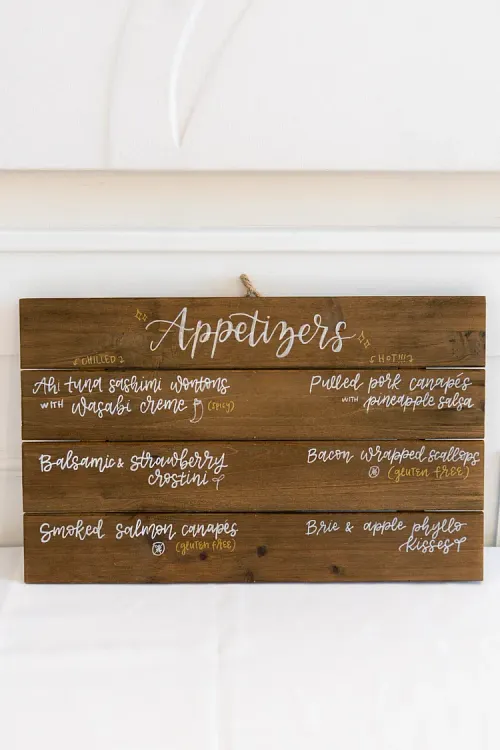 Appetizers
CHILLED
Ahi tuna sashimi wontons
WITH wasabi creme (SPICY)
Balsamic & strawberry
crostini
Smoked salmon canapés
(GLUTEN FREE)
HOT!!
Pulled pork canapés
WITH pineapple salsa
Bacon wrapped scallops
(GLUTEN FREE)
Brie & apple phyllo
kisses